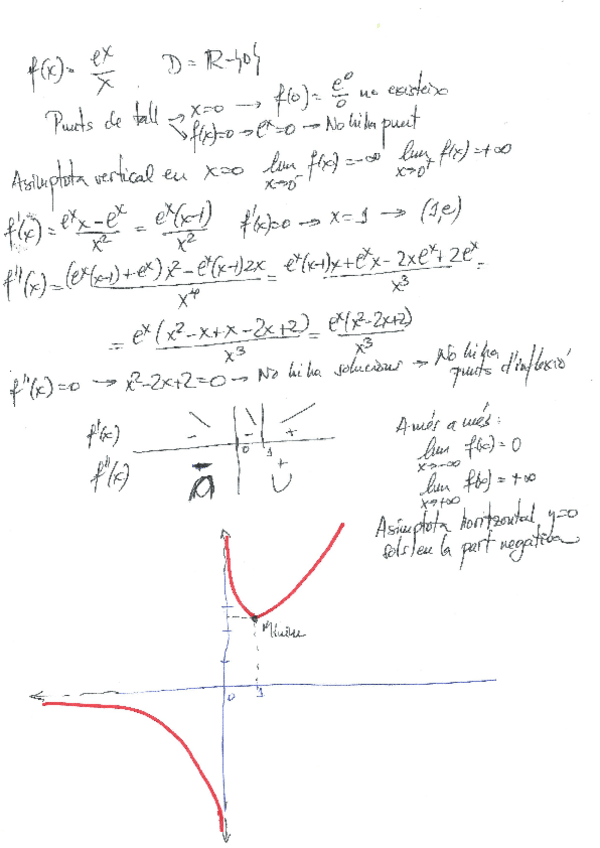 f(x) = e^x/x   D = R-{0}
Punts de tall → x=0 → f(0) = e^0/0 no existeix
↘ f(x)=0 → e^x=0 → No hi ha punt
Asímptota vertical en x=0   lim x→0⁻ f(x) = -∞   lim x→0⁺ f(x) = +∞
f'(x) = (e^x x - e^x)/x² = e^x(x-1)/x²   f'(x)=0 → x=1 → (1,e)
f''(x) = ((e^x(x-1)+e^x)x² - e^x(x-1)2x)/x⁴ = (e^x(x-1)x + e^x x - 2xe^x + 2e^x)/x³ =
= e^x(x²-x+x-2x+2)/x³ = e^x(x²-2x+2)/x³
f''(x)=0 → x²-2x+2=0 → No hi ha solucions → No hi ha
punts d'inflexió
f'(x) - - +
0 1
f''(x) - ∩ + ∪
A més a més:
lim x→-∞ f(x) = 0
lim x→+∞ f(x) = +∞
Asímptota horitzontal y=0
sols en la part negativa
Mínim
0 1